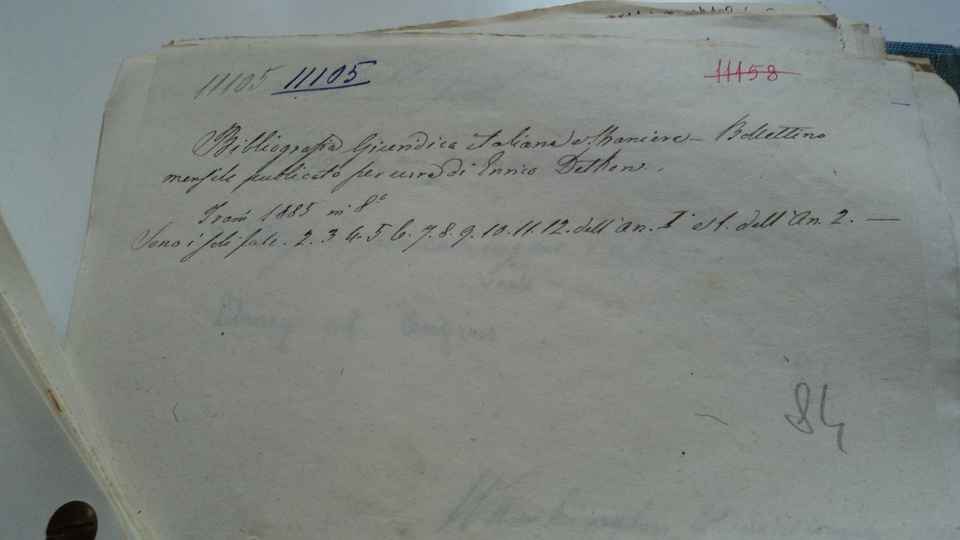 11105 11105 11158
Bibliografia Giuridica Italiana e Straniera – Bollettino
mensile publicato per cura di Enrico
Trani 1885 in 8°
Sono i soli fasc. 2. 3. 4. 5. 6. 7. 8. 9. 10. 11. 12. dell'an. I° e 1. dell'An. 2. —
84